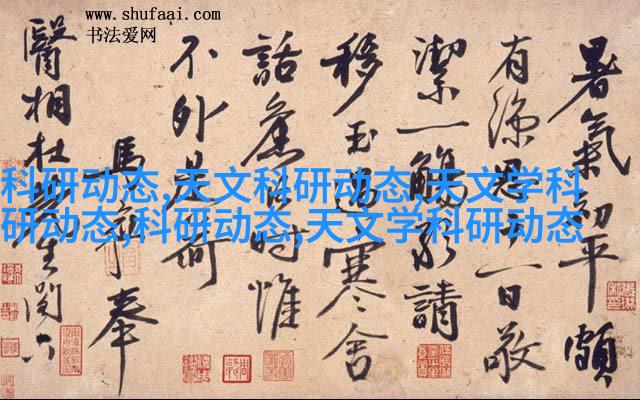 www.shufaai.com
书法爱网
暑氣初平頗
有思一日敬
潔一觴請
移玉過寒舍
話舊時惟
不外是荷
馬奉
醫相杜生閣下
科研动态,天文科研动态,天文学科
研动态,科研动态,天文学科研动态